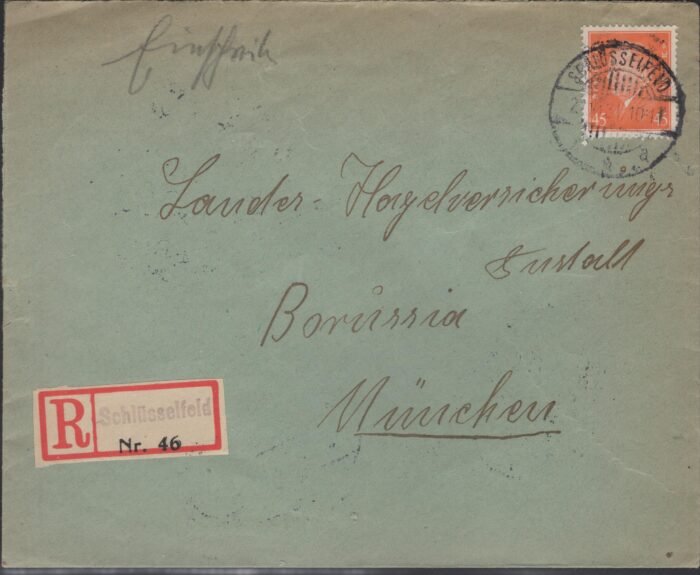 Einschreib
SCHLÜSSELFELD
45 45
Landes-Hagelversicherungs
Anstalt
Borussia
München
R Schlüsselfeld
Nr. 46